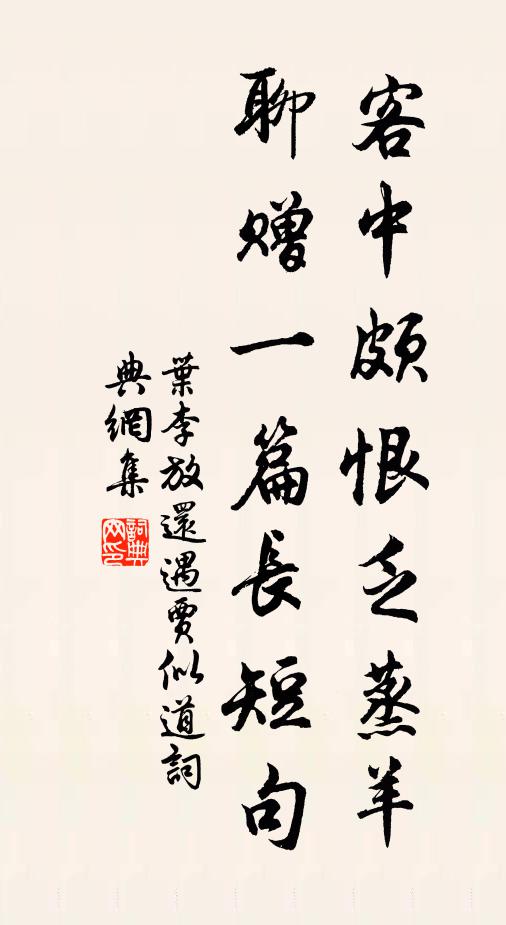 客中頗恨乏蒸羊
聊贈一篇長短句
葉李放還遇賈似道詞
典網集
詞典
网印